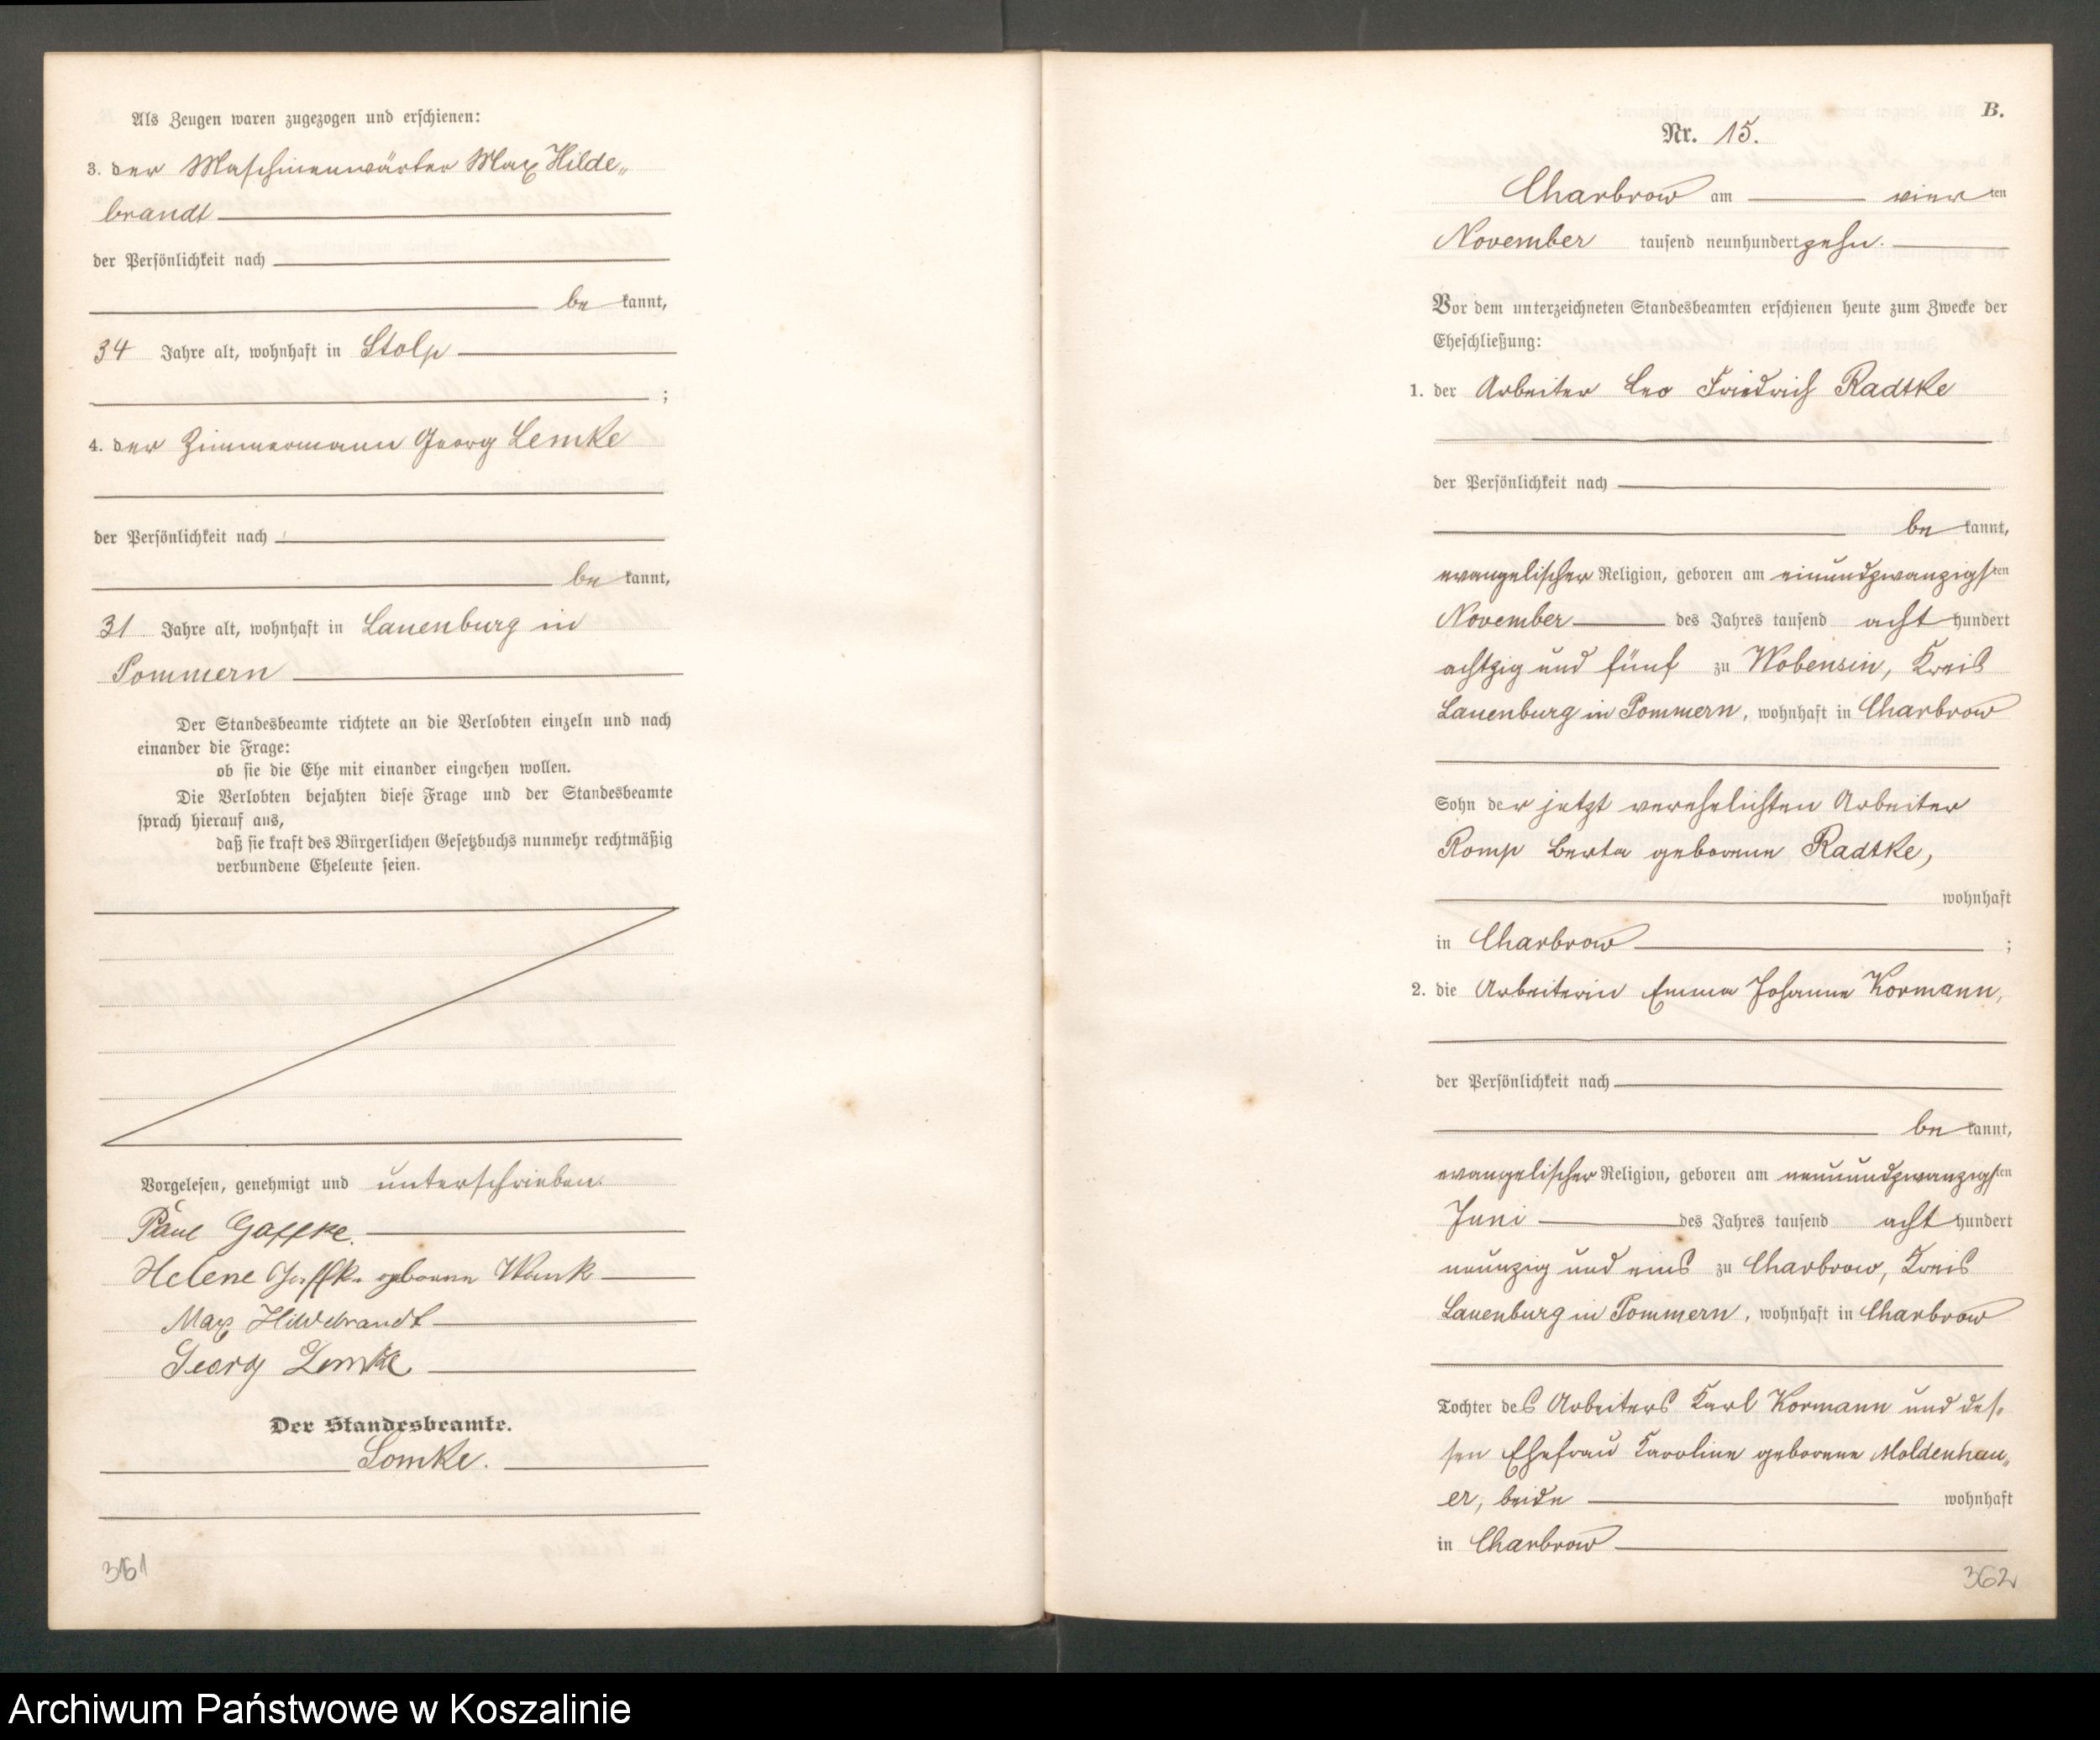 Als Zeugen waren zugezogen und erschienen:
3. der Maschinenwärter Max Hilde„
brandt
der Persönlichkeit nach
be kannt,
34 Jahre alt, wohnhaft in Stolp
;
4. der Zimmermann Georg Lemke
der Persönlichkeit nach
be kannt,
31 Jahre alt, wohnhaft in Lauenburg in
Pommern
Der Standesbeamte richtete an die Verlobten einzeln und nach
einander die Frage:
ob sie die Ehe mit einander eingehen wollen.
Die Verlobten bejahten diese Frage und der Standesbeamte
sprach hierauf aus,
daß sie kraft des Bürgerlichen Gesetzbuchs nunmehr rechtmäßig
verbundene Eheleute seien.
Vorgelesen, genehmigt und unterschrieben.
Paul Gaffke.
Helene Gaffke geborene Wank
Max Hildebrandt
Georg Lemke
Der Standesbeamte.
Lomke.
361
B.
Nr. 15.
Charbrow am vier ten
November tausend neunhundert zehn.
Vor dem unterzeichneten Standesbeamten erschienen heute zum Zwecke der
Eheschließung:
1. der Arbeiter Leo Friedrich Radtke
der Persönlichkeit nach
be kannt,
evangelischer Religion, geboren am einundzwanzigsten
November des Jahres tausend acht hundert
achtzig und fünf zu Wobensin, Kreis
Lauenburg in Pommern, wohnhaft in Charbrow
Sohn der jetzt verehelichten Arbeiter
Romp Berta geborene Radtke,
wohnhaft
in Charbrow ;
2. die Arbeiterin Emma Johanne Kormann,
der Persönlichkeit nach
be kannt,
evangelischer Religion, geboren am neunundzwanzigsten
Juni des Jahres tausend acht hundert
neunzig und eins zu Charbrow, Kreis
Lauenburg in Pommern, wohnhaft in Charbrow
Tochter des Arbeiters Karl Kormann und des„
sen Ehefrau Karoline geborene Moldenhau„
er, beide wohnhaft
in Charbrow
362
Archiwum Państwowe w Koszalinie